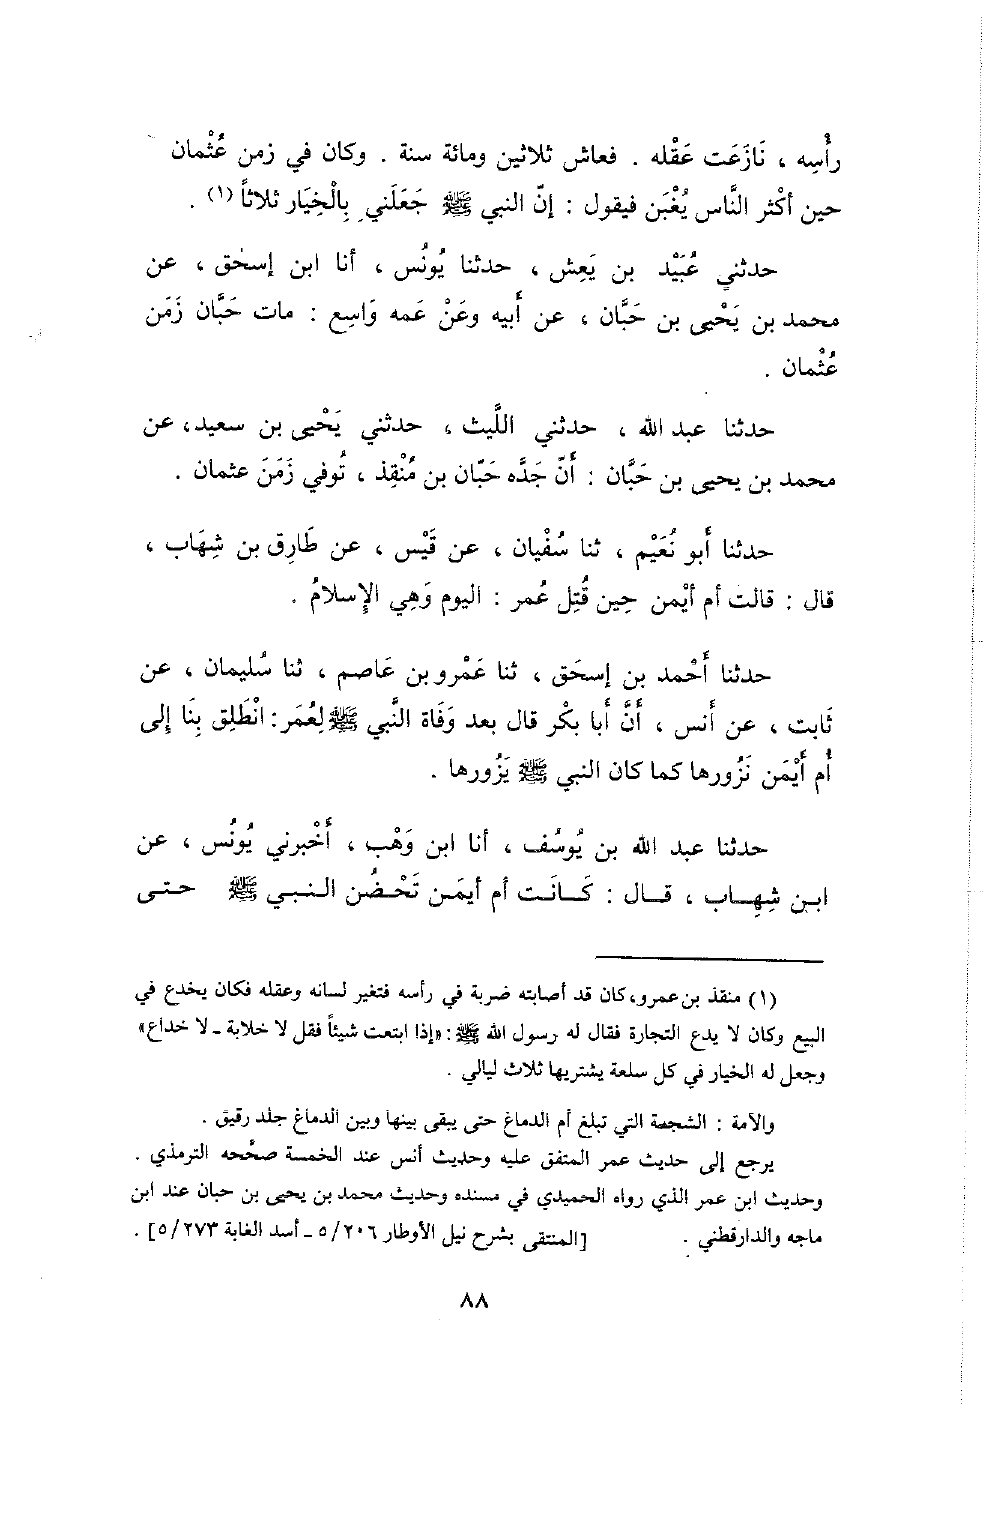 رأْسِه ، نَازَعَت عَقْله . فعاش ثلاثين ومائة سنة . وكان في زمن عُثْمان
حين أكْثر النَّاس يُغْبَن فيقول : إنّ النبي ﷺ جَعَلَني بِالْخِيَار ثلاثاً (١) .
حدثني عُبَيْد بن يَعِش ، حدثنا يُونُس ، أنا ابن إسحٰق ، عن
محمد بن يَحْيى بن حَبَّان ، عن أَبيه وعَنْ عَمه وَاسِع : مات حَبَّان زَمَن
عُثْمان .
حدثنا عبد الله ، حدثني اللَّيث ، حدثني يَحْيى بن سعيد، عن
محمد بن يحيى بن حَبَّان : أَنّ جَدَّه حَبّان بن مُنْقِذ ، تُوفي زَمَنَ عثمان .
حدثنا أَبو نُعَيْم ، ثنا سُفْيان ، عن قَيْس ، عن طَارِق بن شِهَاب ،
قال : قالت أم أيْمن حِين قُتِل عُمر : اليوم وَهِي الإِسلامُ .
حدثنا أَحْمد بن إسحَق ، ثنا عَمْرو بن عَاصم ، ثنا سُليمان ، عن
ثَابت ، عن أَنس ، أَنَّ أَبا بكْر قال بعد وَفَاة النَّبي ﷺ لِعُمَر : انْطَلِق بِنَا إِلى
أُم أَيْمَن نَزُورها كما كان النبي ﷺ يَزُورها .
حدثنا عبد الله بن يُوسُف ، أنا ابن وَهْب ، أَخْبرني يُونُس ، عن
ابن شِهاب ، قال : كَانَت أم أيمَن تَحْضُن النبي ﷺ حتى
(١) منقذ بن عمرو، كان قد أصابته ضربة في رأسه فتغير لسانه وعقله فكان يخدع في
البيع وكان لا يدع التجارة فقال له رسول الله ﷺ : «إذا ابتعت شيئاً فقل لا خلابة ـ لا خداع»
وجعل له الخيار في كل سلعة يشتريها ثلاث ليالي .
والآمة : الشجمة التي تبلغ أم الدماغ حتى يبقى بينها وبين الدماغ جلد رقيق .
يرجع إلى حديث عمر المتفق عليه وحديث أنس عند الخمسة صحَّحه الترمذي .
وحديث ابن عمر الذي رواه الحميدي في مسنده وحديث محمد بن يحيى بن حبان عند ابن
ماجه والدارقطني . [المنتقى بشرح نيل الأوطار ٥/٢٠٦ ـ أسد الغابة ٥/٢٧٣] .
٨٨